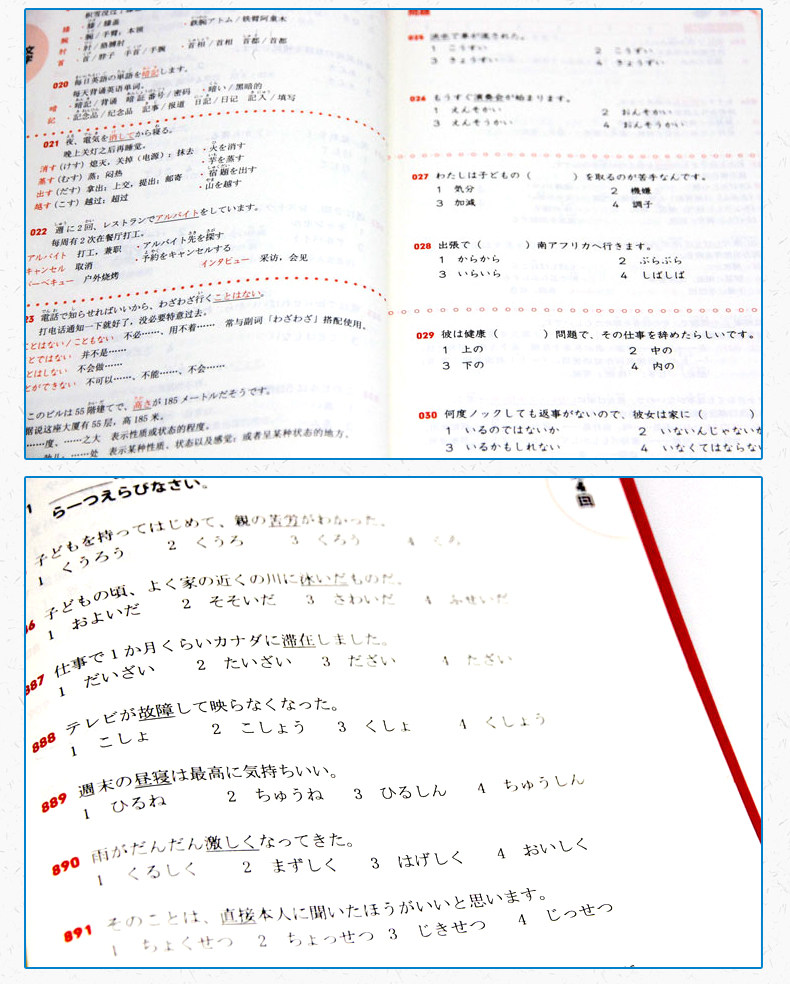 020 毎日英語の単語を暗記します。
每天背诵英语单词。 ・暗い/黑暗的
・暗記/背诵 暗証番号/密码 日記/日记 記入/填写
・記念品/纪念品 記事/报道
021 夜、電気を消してから寝る。
晚上关灯之后再睡觉。
消す(けす) 熄灭,关掉(电源);抹去 ・火を消す
蒸す(むす) 蒸;闷热 ・芋を蒸す
出す(だす) 拿出;上交,提出;邮寄 ・宿題を出す
越す(こす) 越过;超过 ・山を越す
022 週に2回、レストランでアルバイトをしています。
每周有2次在餐厅打工。
アルバイト 打工,兼职 ・アルバイト先を探す
キャンセル 取消 ・予約をキャンセルする
バーベキュー 户外烧烤 インタビュー 采访,会见
23 電話で知らせればいいから、わざわざ行くことはない。
打电话通知一下就好了,没必要特意过去。
ことはない/こともない 不必……、用不着…… 常与副词「わざわざ」搭配使用。
ことではない 并不是……
とはしない 不会做……
とができない 不可以……、不能……、不会……
このビルは55階建てで、高さが185メートルだそうです。
据说这座大厦有55层,高185米。
……度、……之大 表示性质或状态的程度。
……处 表示某种性质、状态以及感觉;或者呈某种状态的地方。
026 もうすぐ演奏会が始まります。
1 えんそかい 2 おんそかい
3 えんそうかい 4 おんそうかい
027 わたしは子どもの( )を取るのが苦手なんです。
1 気分 2 機嫌
3 加減 4 調子
028 出張で( )南アフリカへ行きます。
1 からから 2 ぶらぶら
3 いらいら 4 しばしば
029 彼は健康( )問題で、その仕事を辞めたらしいです。
1 上の 2 中の
3 下の 4 内の
030 何度ノックしても返事がないので、彼女は家に( )
1 いるのではないか 2 いないんじゃないか
3 いるかもしれない 4 いなくてはならない
ら一つえらびなさい。
4
回
子どもを持ってはじめて、親の苦労がわかった。
1 くうろう 2 くうろ 3 くろう 4 くろ
子どもの頃、よく家の近くの川に泳いだものだ。
1 およいだ 2 そそいだ 3 さわいだ 4 ふせいだ
887 仕事で1か月くらいカナダに滞在しました。
1 だいざい 2 たいざい 3 だざい 4 たざい
888 テレビが故障して映らなくなった。
1 こしょ 2 こしょう 3 くしょ 4 くしょう
889 週末の昼寝は最高に気持ちいい。
1 ひるね 2 ちゅうね 3 ひるしん 4 ちゅうしん
890 雨がだんだん激しくなってきた。
1 くるしく 2 まずしく 3 はげしく 4 おいしく
891 そのことは、直接本人に聞いたほうがいいと思います。
1 ちょくせつ 2 ちょっせつ 3 じきせつ 4 じっせつ